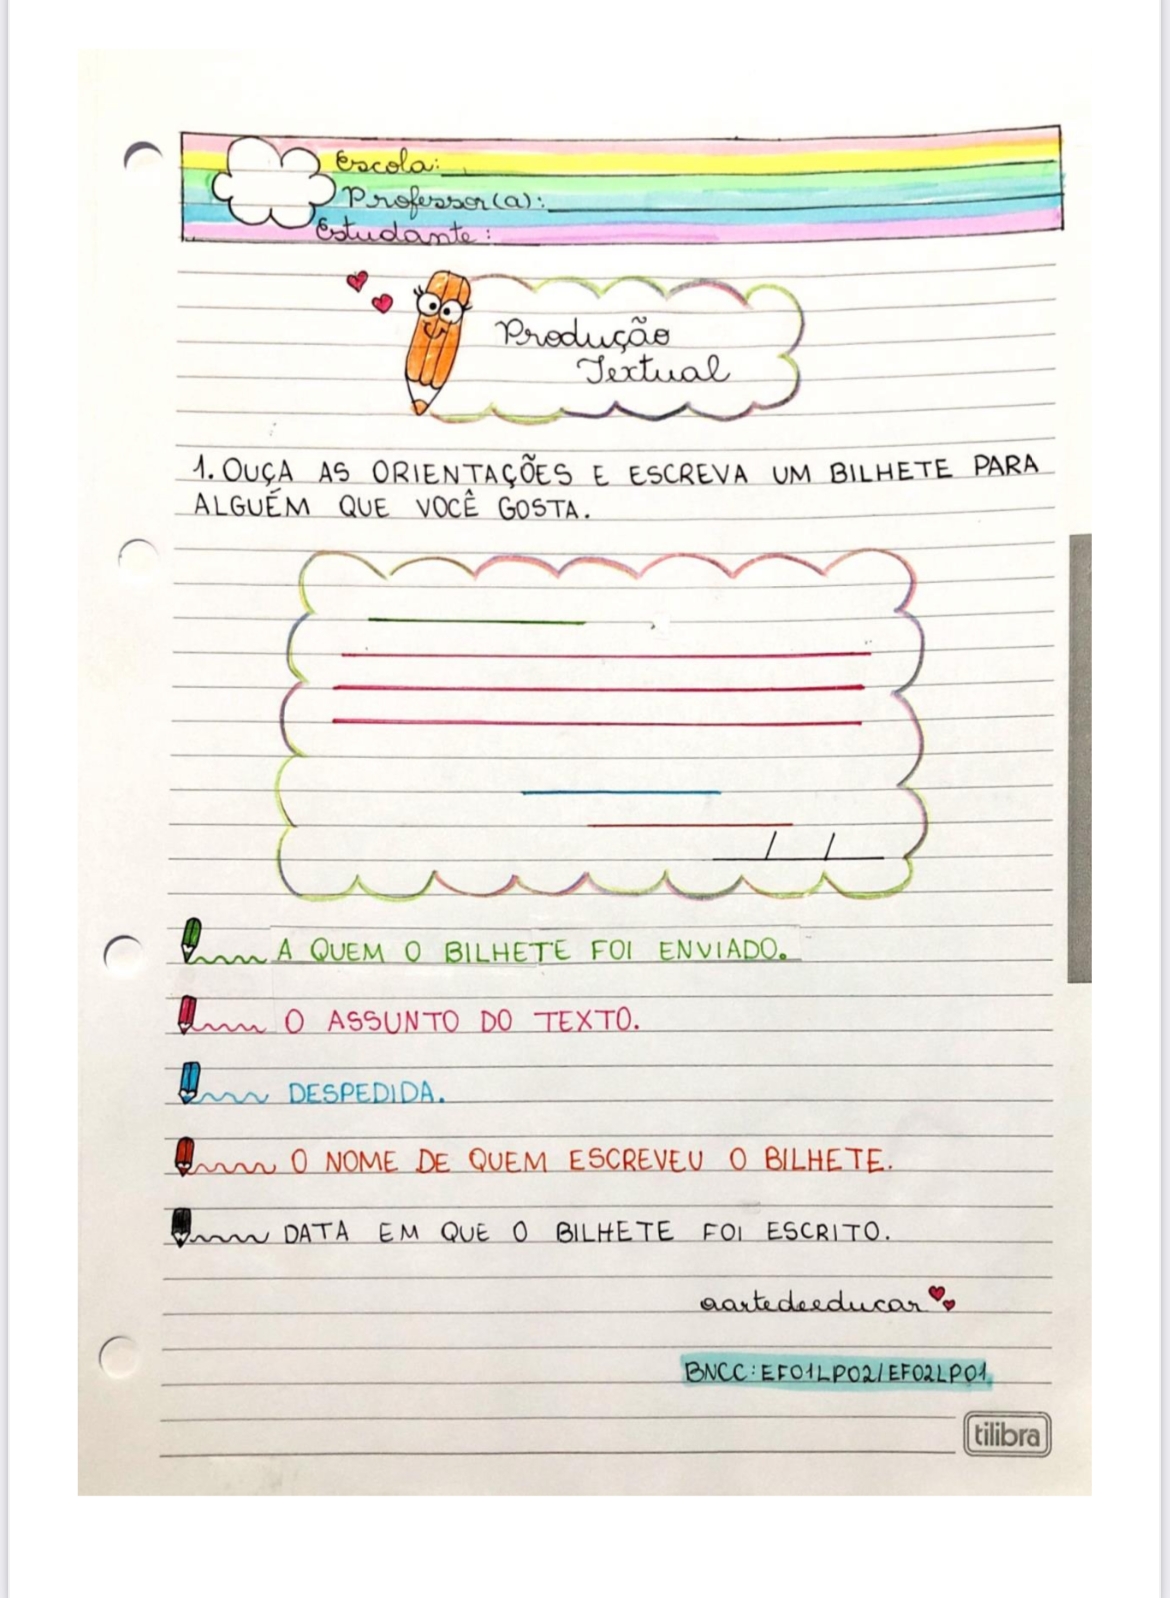 Escola:
Professor(a):
Estudante:
Produção
Textual
1. OUÇA AS ORIENTAÇÕES E ESCREVA UM BILHETE PARA
ALGUÉM QUE VOCÊ GOSTA.
/ /
A QUEM O BILHETE FOI ENVIADO.
O ASSUNTO DO TEXTO.
DESPEDIDA.
O NOME DE QUEM ESCREVEU O BILHETE.
DATA EM QUE O BILHETE FOI ESCRITO.
aartedeeducar
BNCC: EF01LP02/EF02LP01
tilibra